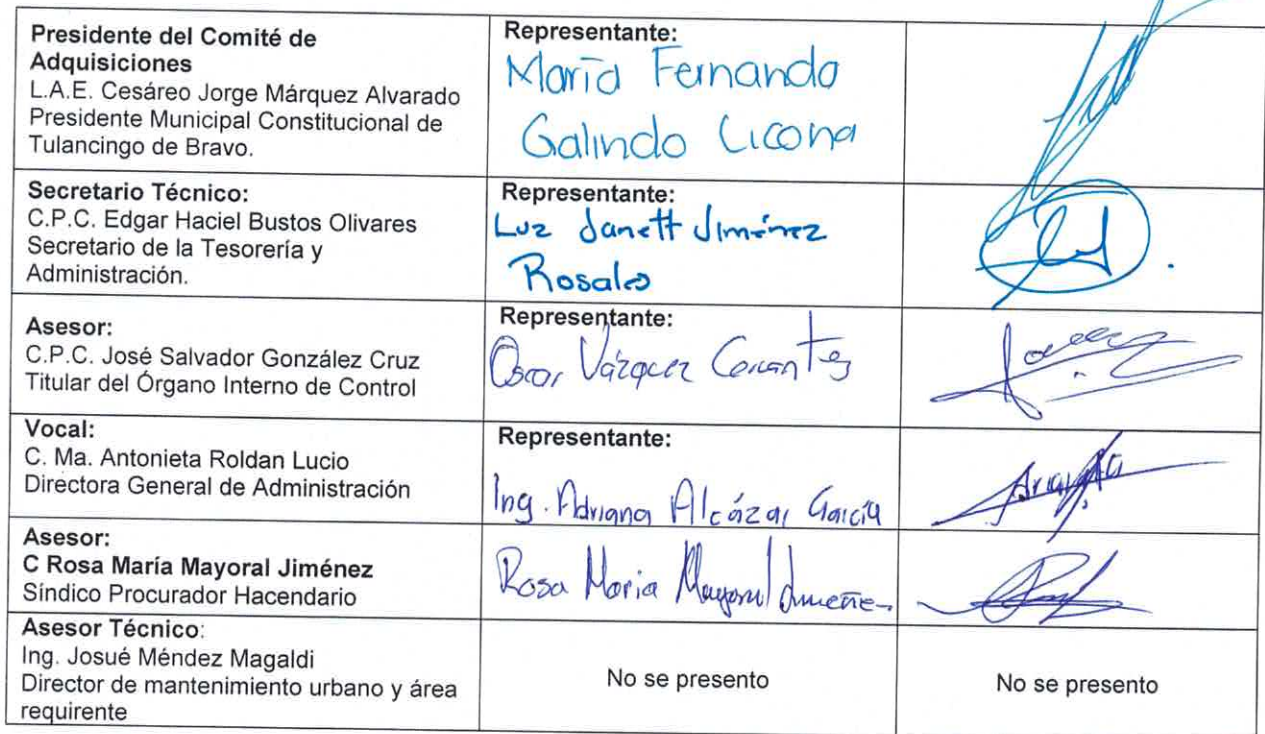 Presidente del Comité de
Adquisiciones
L.A.E. Cesáreo Jorge Márquez Alvarado
Presidente Municipal Constitucional de
Tulancingo de Bravo.
Representante:
María Fernanda
Galindo Licona
Secretario Técnico:
C.P.C. Edgar Haciel Bustos Olivares
Secretario de la Tesorería y
Administración.
Representante:
Luz Janett Jiménez
Rosales
Asesor:
C.P.C. José Salvador González Cruz
Titular del Órgano Interno de Control
Representante:
Oscar Vázquez Cervantes
Vocal:
C. Ma. Antonieta Roldan Lucio
Directora General de Administración
Representante:
Ing. Adriana Alcázar García
Asesor:
C Rosa María Mayoral Jiménez
Síndico Procurador Hacendario
Rosa Maria Mayoral
Asesor Técnico:
Ing. Josué Méndez Magaldi
Director de mantenimiento urbano y área
requirente
No se presento
No se presento